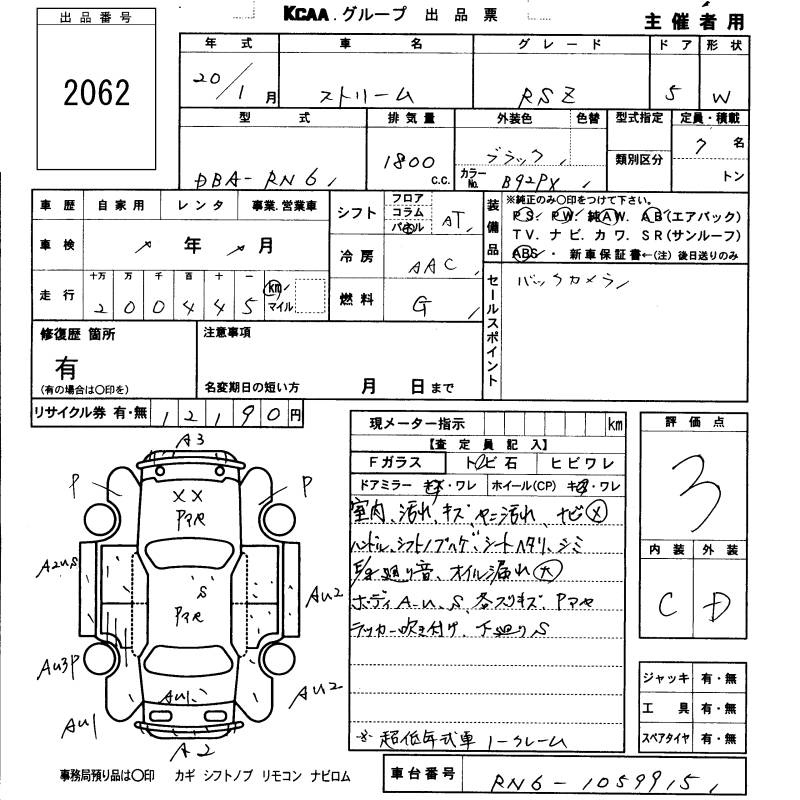 KCAA.グループ 出品票
主催者用
出品番号
2062
年式 車名 グレード ドア 形状
20/1月 ストリーム RSZ 5 W
型式 排気量 外装色 色替 型式指定 定員・積載
DBA-RN6 1800 c.c. ブラック 7名
カラーNo. B92PX 類別区分 トン
車歴 自家用 レンタ 事業.営業車
シフト フロア コラム パネル AT
装備品 ※純正のみ〇印をつけて下さい。
PS. PW. 純AW. AB(エアバック)
TV. ナビ. カワ. SR(サンルーフ)
ABS・ 新車保証書←(注)後日送りのみ
車検 年 月
冷房 AAC
走行 十万 万 千 百 十 一
200445 km マイル
燃料 G
セールスポイント バックカメラ
修復歴 箇所 有 (有の場合は〇印を)
注意事項
名変期日の短い方 月 日まで
リサイクル券 有・無 12190円
現メーター指示 km
【査定員記入】
Fガラス トビ石 ヒビワレ
ドアミラー キズ・ワレ ホイール(CP) キズ・ワレ
室内、汚れ、キズ ヤニ汚れ ナビ×
ハンドル、シフトノブハゲ、シートヘタリ、シミ
音、オイル漏れ 大
ボディA-U、S、各スリキズ、Pマヤ
ラッカー吹き付け、下廻りS
※ 超低年式車 ノークレーム
評価点
3
内装 外装
C D
A3
P P
XX
Pマヤ
S
Pマヤ
A2US
AU2
AU3P
AU2
AU1
AU1
A2
ジャッキ 有・無
工具 有・無
スペアタイヤ 有・無
事務局預り品は〇印 カギ シフトノブ リモコン ナビロム
車台番号 RN6-1059915